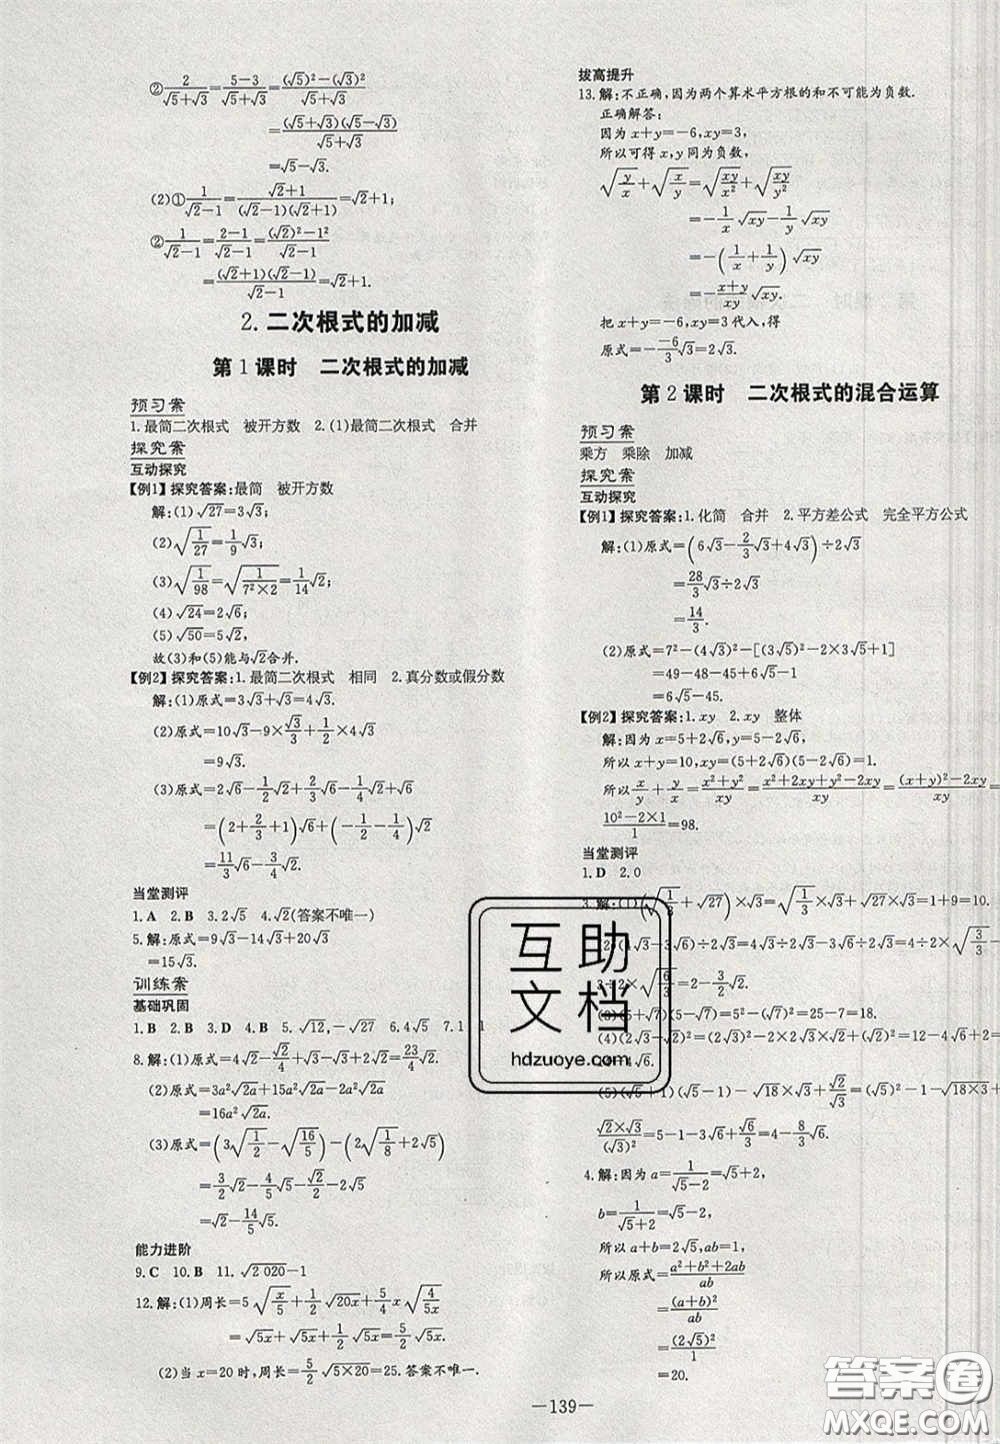 ②2/(√5+√3)=(5-3)/(√5+√3)=((√5)²-(√3)²)/(√5+√3)
=((√5+√3)(√5-√3))/(√5+√3)
=√5-√3.
(2)①1/(√2-1)=(√2+1)/((√2-1)(√2+1))=√2+1;
②1/(√2-1)=(2-1)/(√2-1)=((√2)²-1²)/(√2-1)
=((√2+1)(√2-1))/(√2-1)=√2+1.
2.二次根式的加减
第1课时 二次根式的加减
预习案
1.最简二次根式 被开方数 2.(1)最简二次根式 合并
探究案
互动探究
【例1】探究答案:最简 被开方数
解:(1)√27=3√3;
(2)√(1/27)=1/9√3;
(3)√(1/98)=√(1/(7²×2))=1/14√2;
(4)√24=2√6;
(5)√50=5√2,
故(3)和(5)能与√2合并.
【例2】探究答案:1.最简二次根式 相同 2.真分数或假分数
解:(1)原式=3√3+√3=4√3.
(2)原式=10√3-9×√3/3+1/2×4√3
=9√3.
(3)原式=2√6-1/2√2+2/3√6-1/4√2+√6
=(2+2/3+1)√6+(-1/2-1/4)√2
=11/3√6-3/4√2.
当堂测评
1.A 2.B 3.2√5 4.√2(答案不唯一)
5.解:原式=9√3-14√3+20√3
=15√3.
训练案
基础巩固
1.B 2.B 3.D 4.B 5.√12,-√27 6.4√5 7.1 1
8.解:(1)原式=4√2-√2/4+√3-√3+2√2=23/4√2.
(2)原式=3a²√2a+15a²√2a-2a²√2a
=16a²√2a.
(3)原式=(3√(1/2)-√(16/5))-(2√(1/8)+2√5)
=3/2√2-4/5√5-√2/2-2√5
=√2-14/5√5.
能力进阶
9.C 10.B 11.√2 020-1
12.解:(1)周长=5√(x/5)+1/2√20x+5/4x√(4/5x)
=√5x+√5x+1/2√5x=5/2√5x.
(2)当x=20时,周长=5/2√(5×20)=25.答案不唯一.
拔高提升
13.解:不正确,因为两个算术平方根的和不可能为负数.
正确解答:
因为x+y=-6,xy=3,
所以可得x,y同为负数,
√(y/x)+√(x/y)=√(xy/x²)+√(xy/y²)
=-1/x√xy-1/y√xy
=-(1/x+1/y)√xy
=-(x+y)/xy√xy
把x+y=-6,xy=3代入,得
原式=-(-6)/3√3=2√3.
第2课时 二次根式的混合运算
预习案
乘方 乘除 加减
探究案
互动探究
【例1】探究答案:1.化简 合并 2.平方差公式 完全平方公式
解:(1)原式=(6√3-2/3√3+4√3)÷2√3
=28/3√3÷2√3
=14/3.
(2)原式=7²-(4√3)²-[(3√5)²-2×3√5+1]
=49-48-45+6√5-1
=6√5-45.
【例2】探究答案:1.xy 2.xy 整体
解:因为x=5+2√6,y=5-2√6,
所以x+y=10,xy=(5+2√6)(5-2√6)=1.
所以x/y+y/x=(x²+y²)/xy=(x²+2xy+y²-2xy)/xy=((x+y)²-2xy)/xy=
(10²-2×1)/1=98.
当堂测评
1.D 2.0
3.解:(1)(√(1/3)+√27)×√3=√(1/3×3)+√(27×3)=1+9=10.
(2)(4√3-3√6)÷2√3=4√3÷2√3-3√6÷2√3=4÷2×√(3/3)-
3÷2×√(6/3)=2-3/2√2.
(3)(5+√7)(5-√7)=5²-(√7)²=25-7=18.
=12-4√6+2=
(5)(√5+1)(√5-1)-√18×√3+√2/√3=(√5)²-1-√(18×3)+
(√2×√3)/(√3)²=5-1-3√6+√6/3=4-8/3√6.
4.解:因为a=1/(√5-2)=√5+2,
b=1/(√5+2)=√5-2,
所以a+b=2√5,ab=1,
所以原式=(a²+b²+2ab)/ab
=(a+b)²/ab
=(2√5)²/1
=20.
—139—
互助
文档
hdzuoye.com
答案圈
MXQE.COM